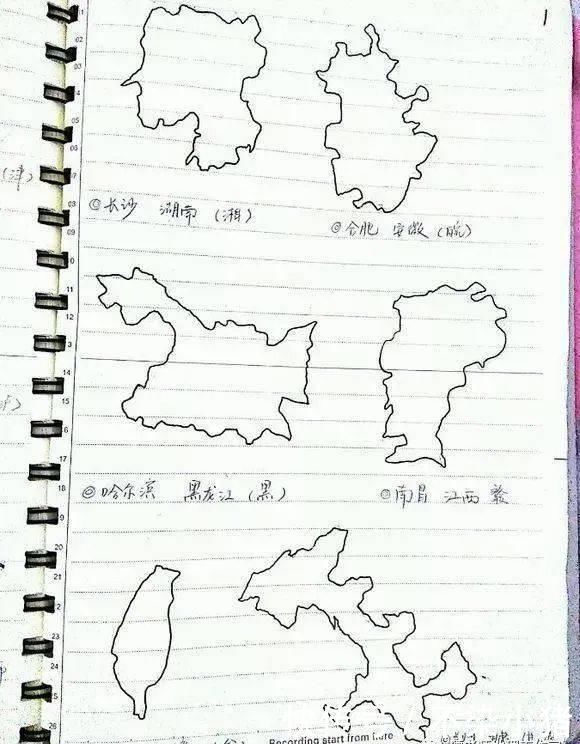 1
(津)
◎长沙 湖南 (湘)
◎合肥 安徽 (皖)
◎哈尔滨 黑龙江 (黑)
◎南昌 江西 赣
02
03
04
05
06
07
08
09
10
11
12
13
14
15
16
17
18
19
20
21
22
23
24
25
26
Recording start from here